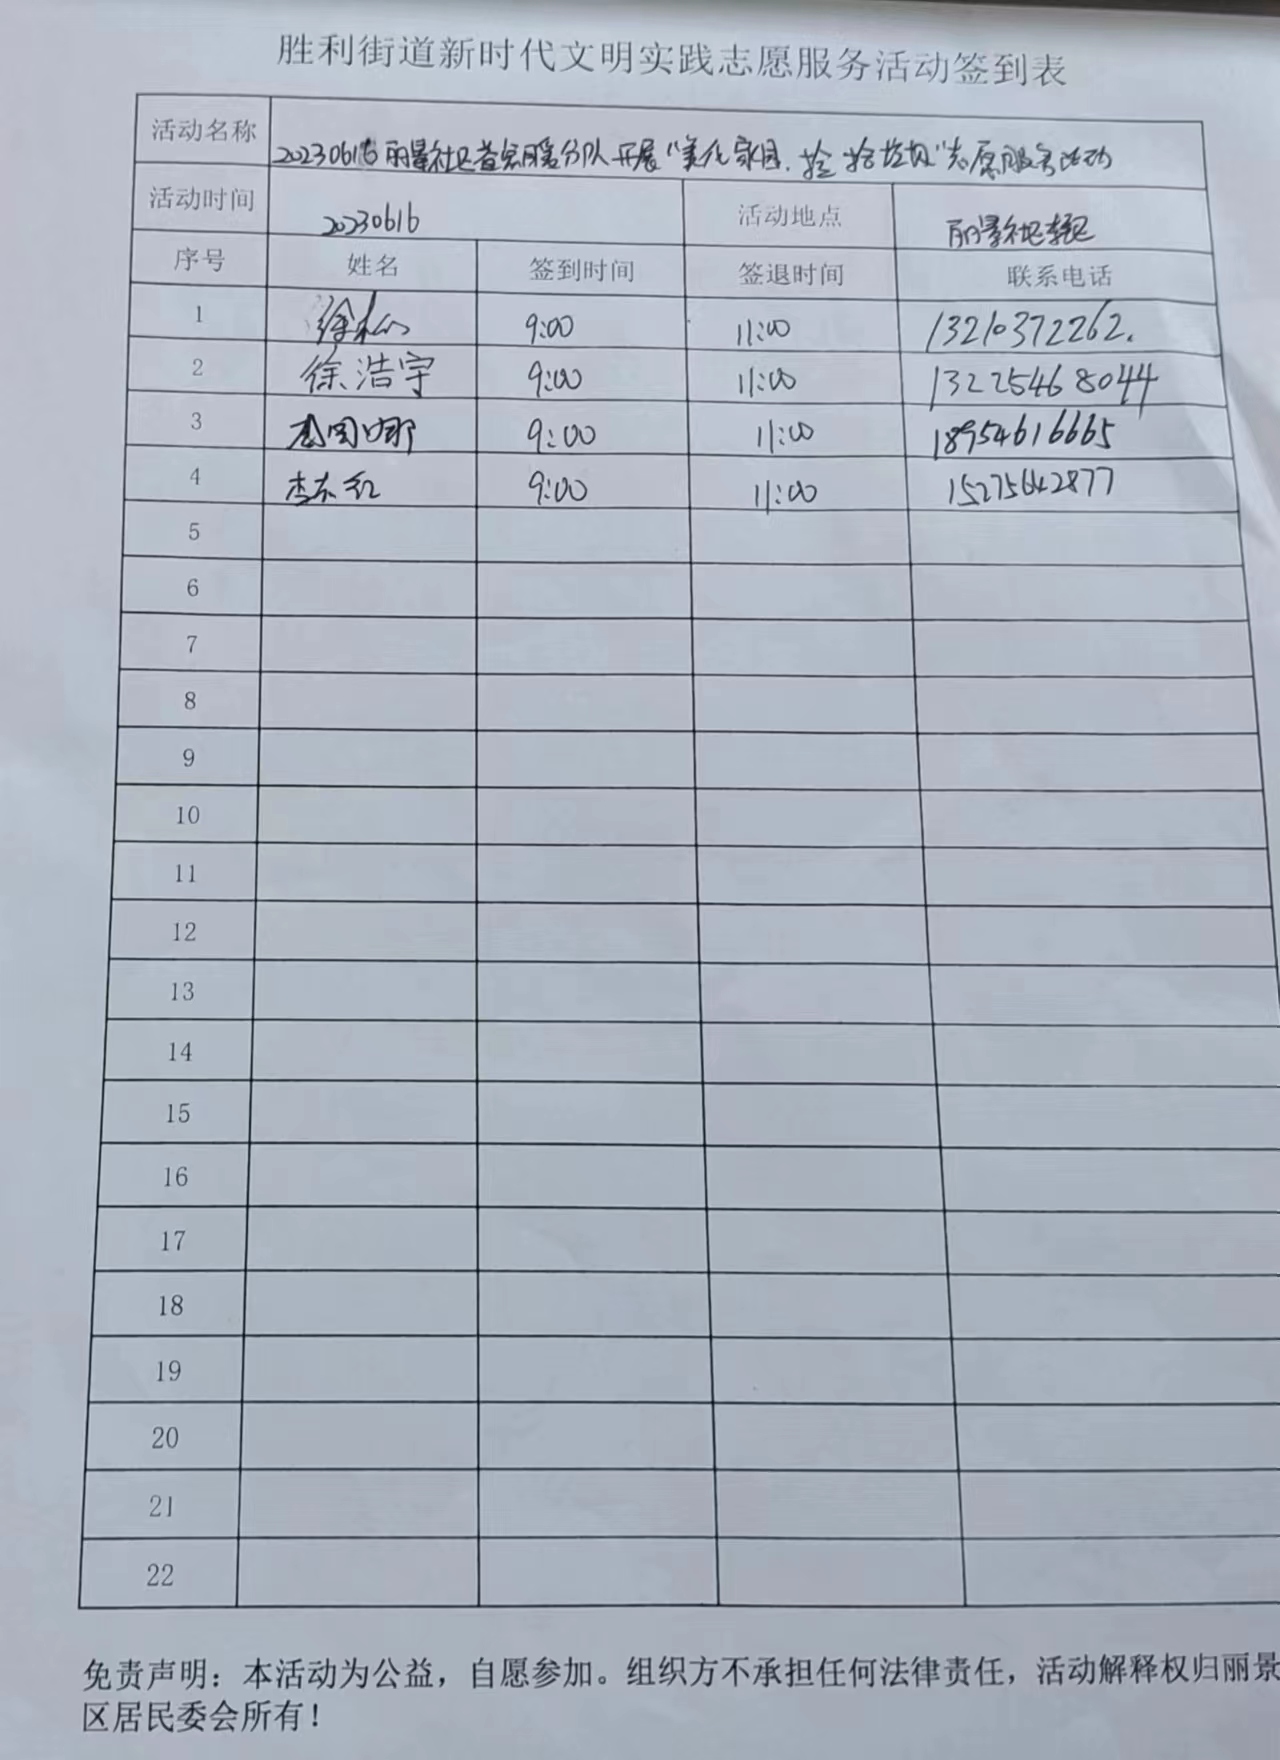 胜利街道新时代文明实践志愿服务活动签到表
活动名称 20230616丽景社区分队开展"美化家园,捡拾垃圾"志愿服务活动
活动时间 20230616 活动地点 丽景社区辖区
序号 姓名 签到时间 签退时间 联系电话
1 徐松 9:00 11:00 13210372262.
2 徐浩宇 9:00 11:00 13225468044
3 9:00 11:00 18954616665
4 李东红 9:00 11:00 15275642877
5
6
7
8
9
10
11
12
13
14
15
16
17
18
19
20
21
22
免责声明：本活动为公益，自愿参加。组织方不承担任何法律责任，活动解释权归丽景
区居民委会所有！